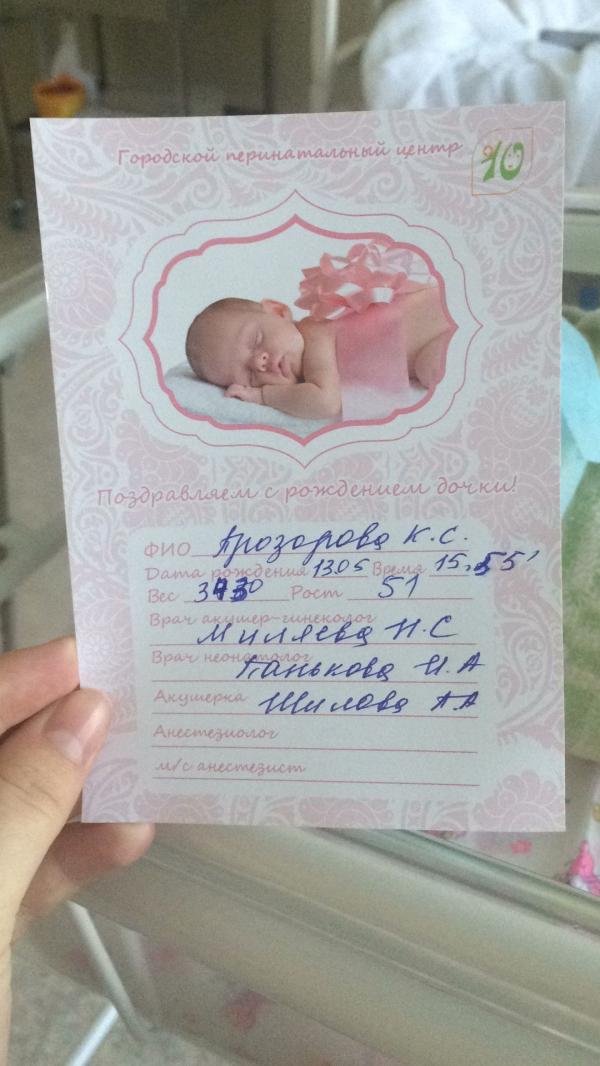 Городской перинатальный центр
10
Поздравляем с рождением дочки!
ФИО Арозорова К.С.
Дата рождения 13.05 Время 15.55
Вес Рост 51
Врач акушер-гинеколог
Миляева Н.С
Врач неонатолог
Панькова И.А
Акушерка Шилова А.А
Анестезиолог
м/с анестезист